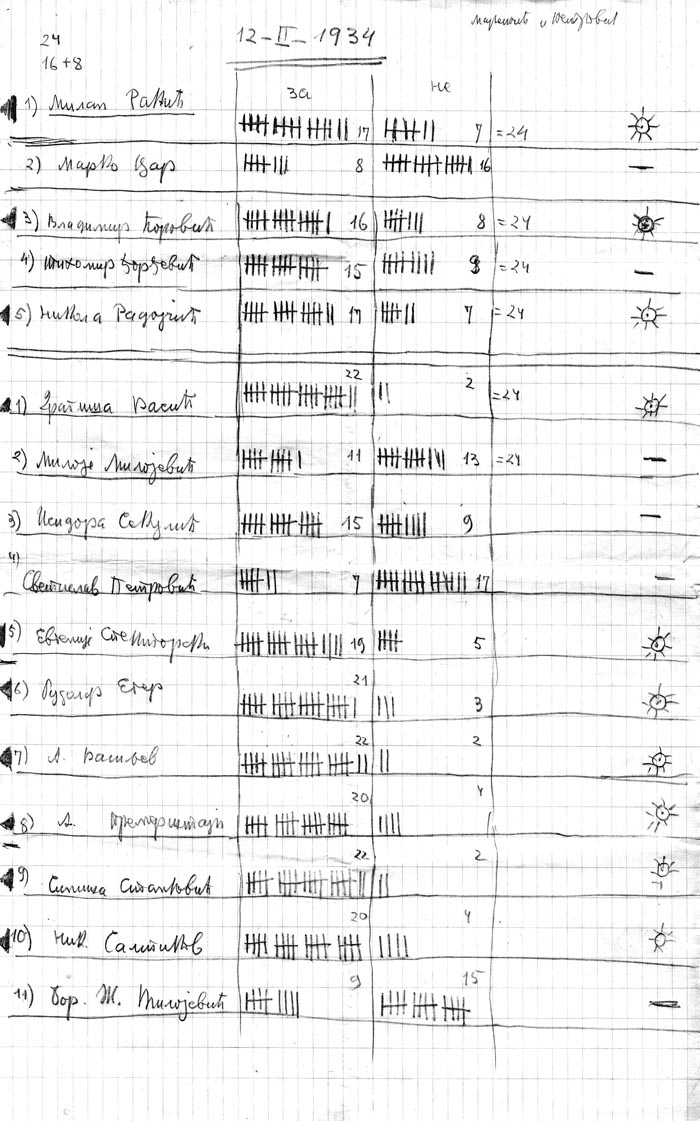 24
16+8
12-II-1934
Маринковић и Петровић
за не
1) Милан Ракић 17 7 =24
2) Марко Цар 8 16
3) Владимир Ћоровић 16 8 =24
4) Тихомир Ђорђевић 15 9 =24
5) Никола Радојчић 17 7 =24
1) Драгиша Васић 22 2 =24
2) Милоје Милојевић 11 13 =24
3) Исидора Секулић 15 9
4) Светислав Петровић 7 17
5) Евгеније 19 5
6) Рудолф Егер 21 3
7) А. Васиљев 22 2
8) А. 20 4
9) Синиша Станковић 22 2
10) Ник. Салтиков 20 4
11) Бор. Ж. Милојевић 9 15